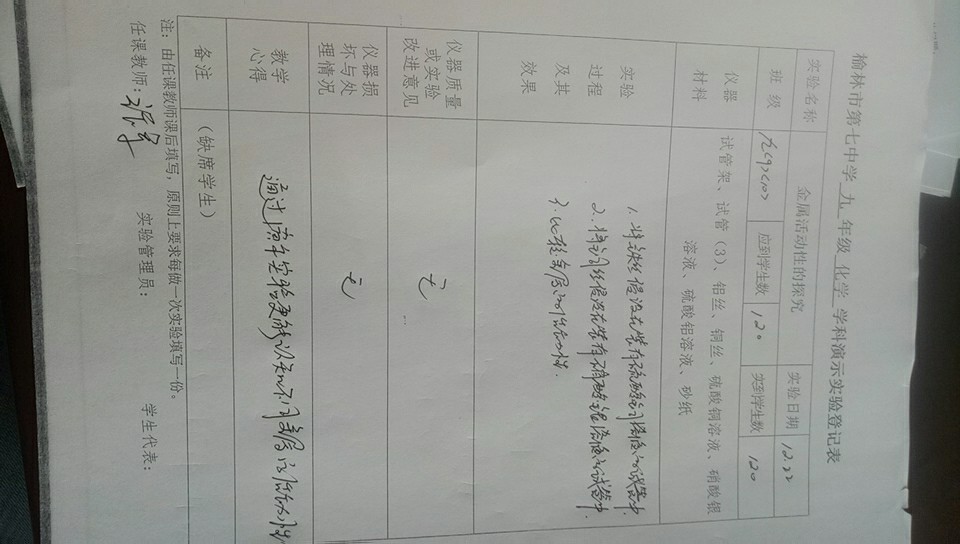 榆林市第七中学 九 年级 化学 学科演示实验登记表
实验名称 金属活动性的探究 实验日期 12.22
班级 九(9)(10) 应到学生数 120 实到学生数 120
仪器
材料
试管架、试管(3)、铝丝、铜丝、硫酸铜溶液、硝酸银
溶液、硫酸铝溶液、砂纸
实验
过程
及其
效果
1. 将铁丝浸没在装有硫酸铜溶液的试管中.
2. 将铜丝浸没在装有硝酸银溶液的试管中.
3. 比较金属的活动性.
仪器质量
或实验
改进意见
无
仪器损
坏与处
理情况
无
教学
心得
通过演示实验更能认知不同金属的活动性
备注 (缺席学生)
注:由任课教师课后填写,原则上要求每做一次实验填写一份。
任课教师: 实验管理员: 学生代表: